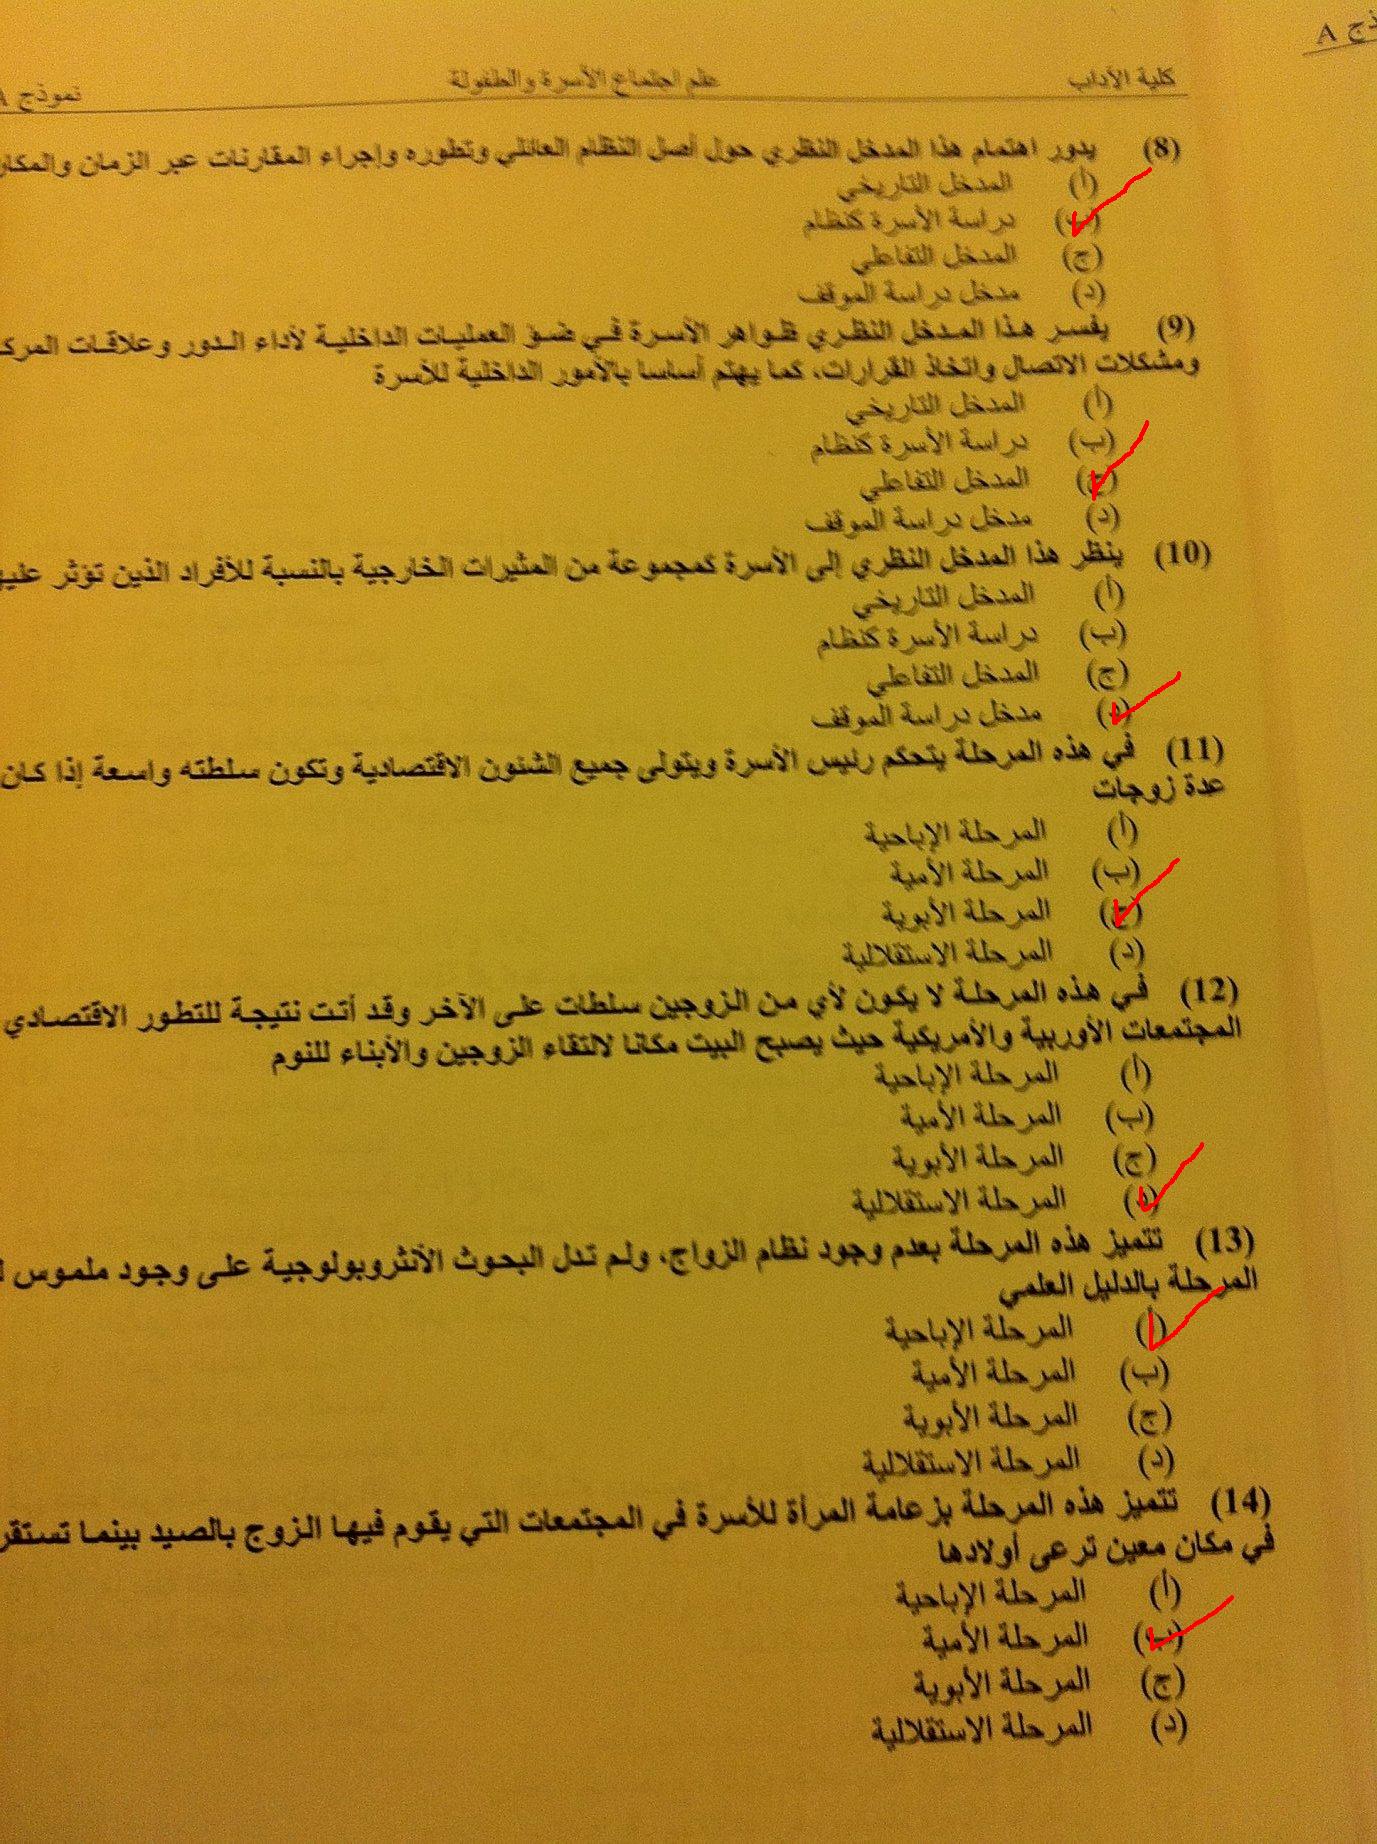 نموذج A
كلية الآداب علم اجتماع الأسرة والطفولة نموذج A
(8) يدور اهتمام هذا المدخل النظري حول أصل النظام العائلي وتطوره وإجراء المقارنات عبر الزمان والمكان
(أ) المدخل التاريخي
(ب) دراسة الأسرة كنظام
(ج) المدخل التفاعلي
(د) مدخل دراسة الموقف
(9) يفسر هذا المدخل النظري ظواهر الأسرة في ضوء العمليات الداخلية لأداء الدور وعلاقات المركز
ومشكلات الاتصال واتخاذ القرارات، كما يهتم أساسا بالأمور الداخلية للأسرة
(أ) المدخل التاريخي
(ب) دراسة الأسرة كنظام
(ج) المدخل التفاعلي
(د) مدخل دراسة الموقف
(10) ينظر هذا المدخل النظري إلى الأسرة كمجموعة من المثيرات الخارجية بالنسبة للأفراد الذين تؤثر عليهم
(أ) المدخل التاريخي
(ب) دراسة الأسرة كنظام
(ج) المدخل التفاعلي
(د) مدخل دراسة الموقف
(11) في هذه المرحلة يتحكم رئيس الأسرة ويتولى جميع الشئون الاقتصادية وتكون سلطته واسعة إذا كان
عدة زوجات
(أ) المرحلة الإباحية
(ب) المرحلة الأمية
(ج) المرحلة الأبوية
(د) المرحلة الاستقلالية
(12) في هذه المرحلة لا يكون لأي من الزوجين سلطات على الآخر وقد أتت نتيجة للتطور الاقتصادي
المجتمعات الأوربية والأمريكية حيث يصبح البيت مكانا لالتقاء الزوجين والأبناء للنوم
(أ) المرحلة الإباحية
(ب) المرحلة الأمية
(ج) المرحلة الأبوية
(د) المرحلة الاستقلالية
(13) تتميز هذه المرحلة بعدم وجود نظام الزواج، ولم تدل البحوث الأنثروبولوجية على وجود ملموس
المرحلة بالدليل العلمي
(أ) المرحلة الإباحية
(ب) المرحلة الأمية
(ج) المرحلة الأبوية
(د) المرحلة الاستقلالية
(14) تتميز هذه المرحلة بزعامة المرأة للأسرة في المجتمعات التي يقوم فيها الزوج بالصيد بينما تستقر
في مكان معين ترعى أولادها
(أ) المرحلة الإباحية
(ب) المرحلة الأمية
(ج) المرحلة الأبوية
(د) المرحلة الاستقلالية